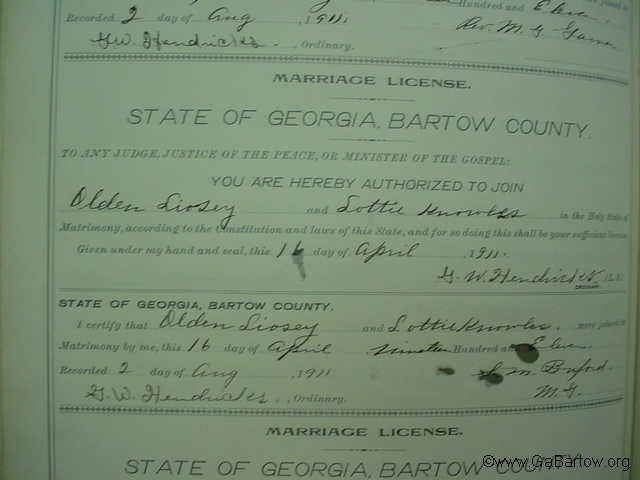 Hundred and Eleven.
Recorded 2 day of Aug , 1911.
G.W. Hendricks. , Ordinary.
Rev. M. G.
MARRIAGE LICENSE.
STATE OF GEORGIA, BARTOW COUNTY.
TO ANY JUDGE, JUSTICE OF THE PEACE, OR MINISTER OF THE GOSPEL:
YOU ARE HEREBY AUTHORIZED TO JOIN
Olden Liosey and Lottie Knowles in the Holy State of
Matrimony, according to the Constitution and laws of this State, and for so doing this shall be your sufficient license.
Given under my hand and seal, this 16 day of April , 1911.
G. W. Hendricks, (L. S.)
ORDINARY.
STATE OF GEORGIA, BARTOW COUNTY.
I certify that Olden Liosey and Lottie Knowles. were joined in
Matrimony by me, this 16 day of April nineteen Hundred and Eleven.
Recorded 2 day of Aug , 1911
S. M. Buford.
G.W. Hendricks. , Ordinary.
M. G.
MARRIAGE LICENSE.
STATE OF GEORGIA, BARTOW COUNTY.
©www.GaBartow.org